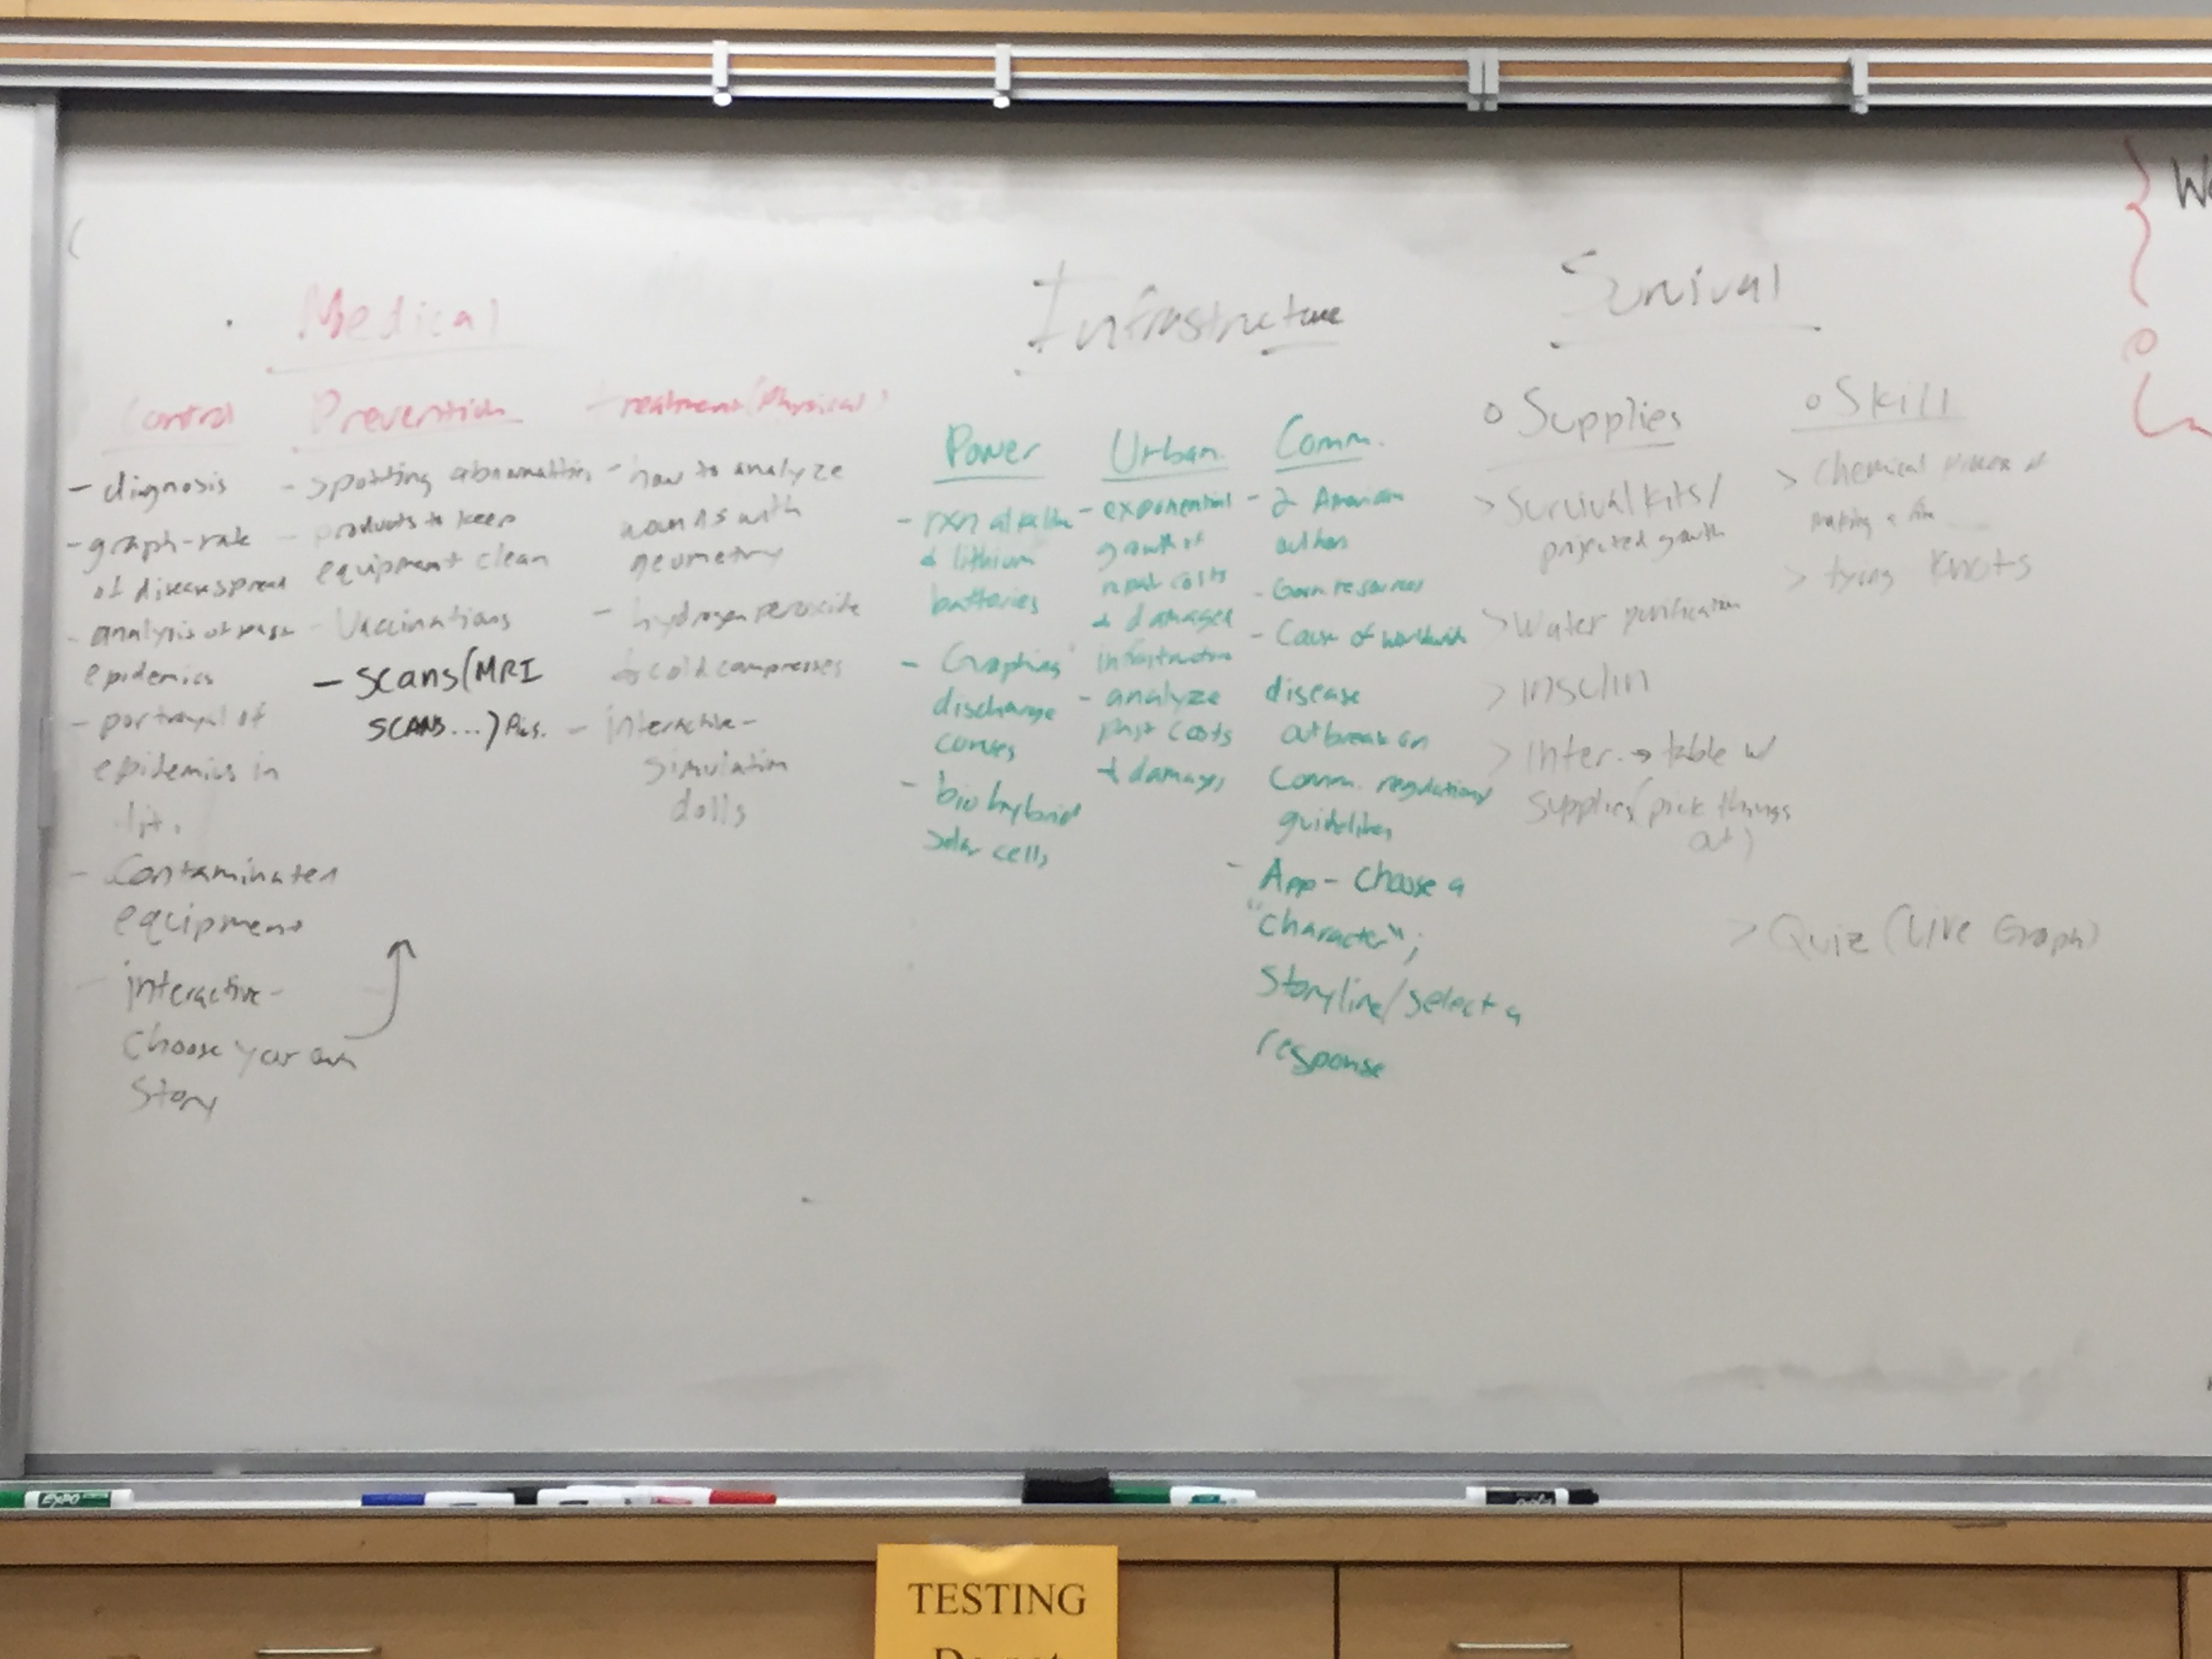 Medical
Control
- diagnosis
- graph-rate
of disease spread
- analysis of past
epidemics
- portrayal of
epidemics in
lit.
- Contaminated
equipment
- interactive-
Choose your own
Story
Prevention
- spotting abnormalities
- products to keep
equipment clean
- Vaccinations
- scans (MRI
SCANS...) Pics.
treatment (Physical)
- how to analyze
wounds with
geometry
- hydrogen peroxide
+ cold compresses
- interactive-
simulation
dolls
Infrastructure
Power
- rxn alkaline
& lithium
batteries
- Graphing
discharge
curves
- biohybrid
solar cells
Urban
- exponential
growth of
repair costs
+ damages
infrastructure
- analyze
past costs
+ damages
Comm.
- 2 American
authors
- resources
- Cause of worldwide
disease
outbreak on
Comm. regulations/
guidelines
- App - Choose a
"character";
Storyline/select a
response
Survival
o Supplies
> Survival kits/
projected growth
> Water purification
> insulin
> Inter. → table w/
supplies (pick things
out)
o Skill
> Chemical
making a fire
> tying knots
> Quiz (Live Graph)
EXPO
TESTING
Do not